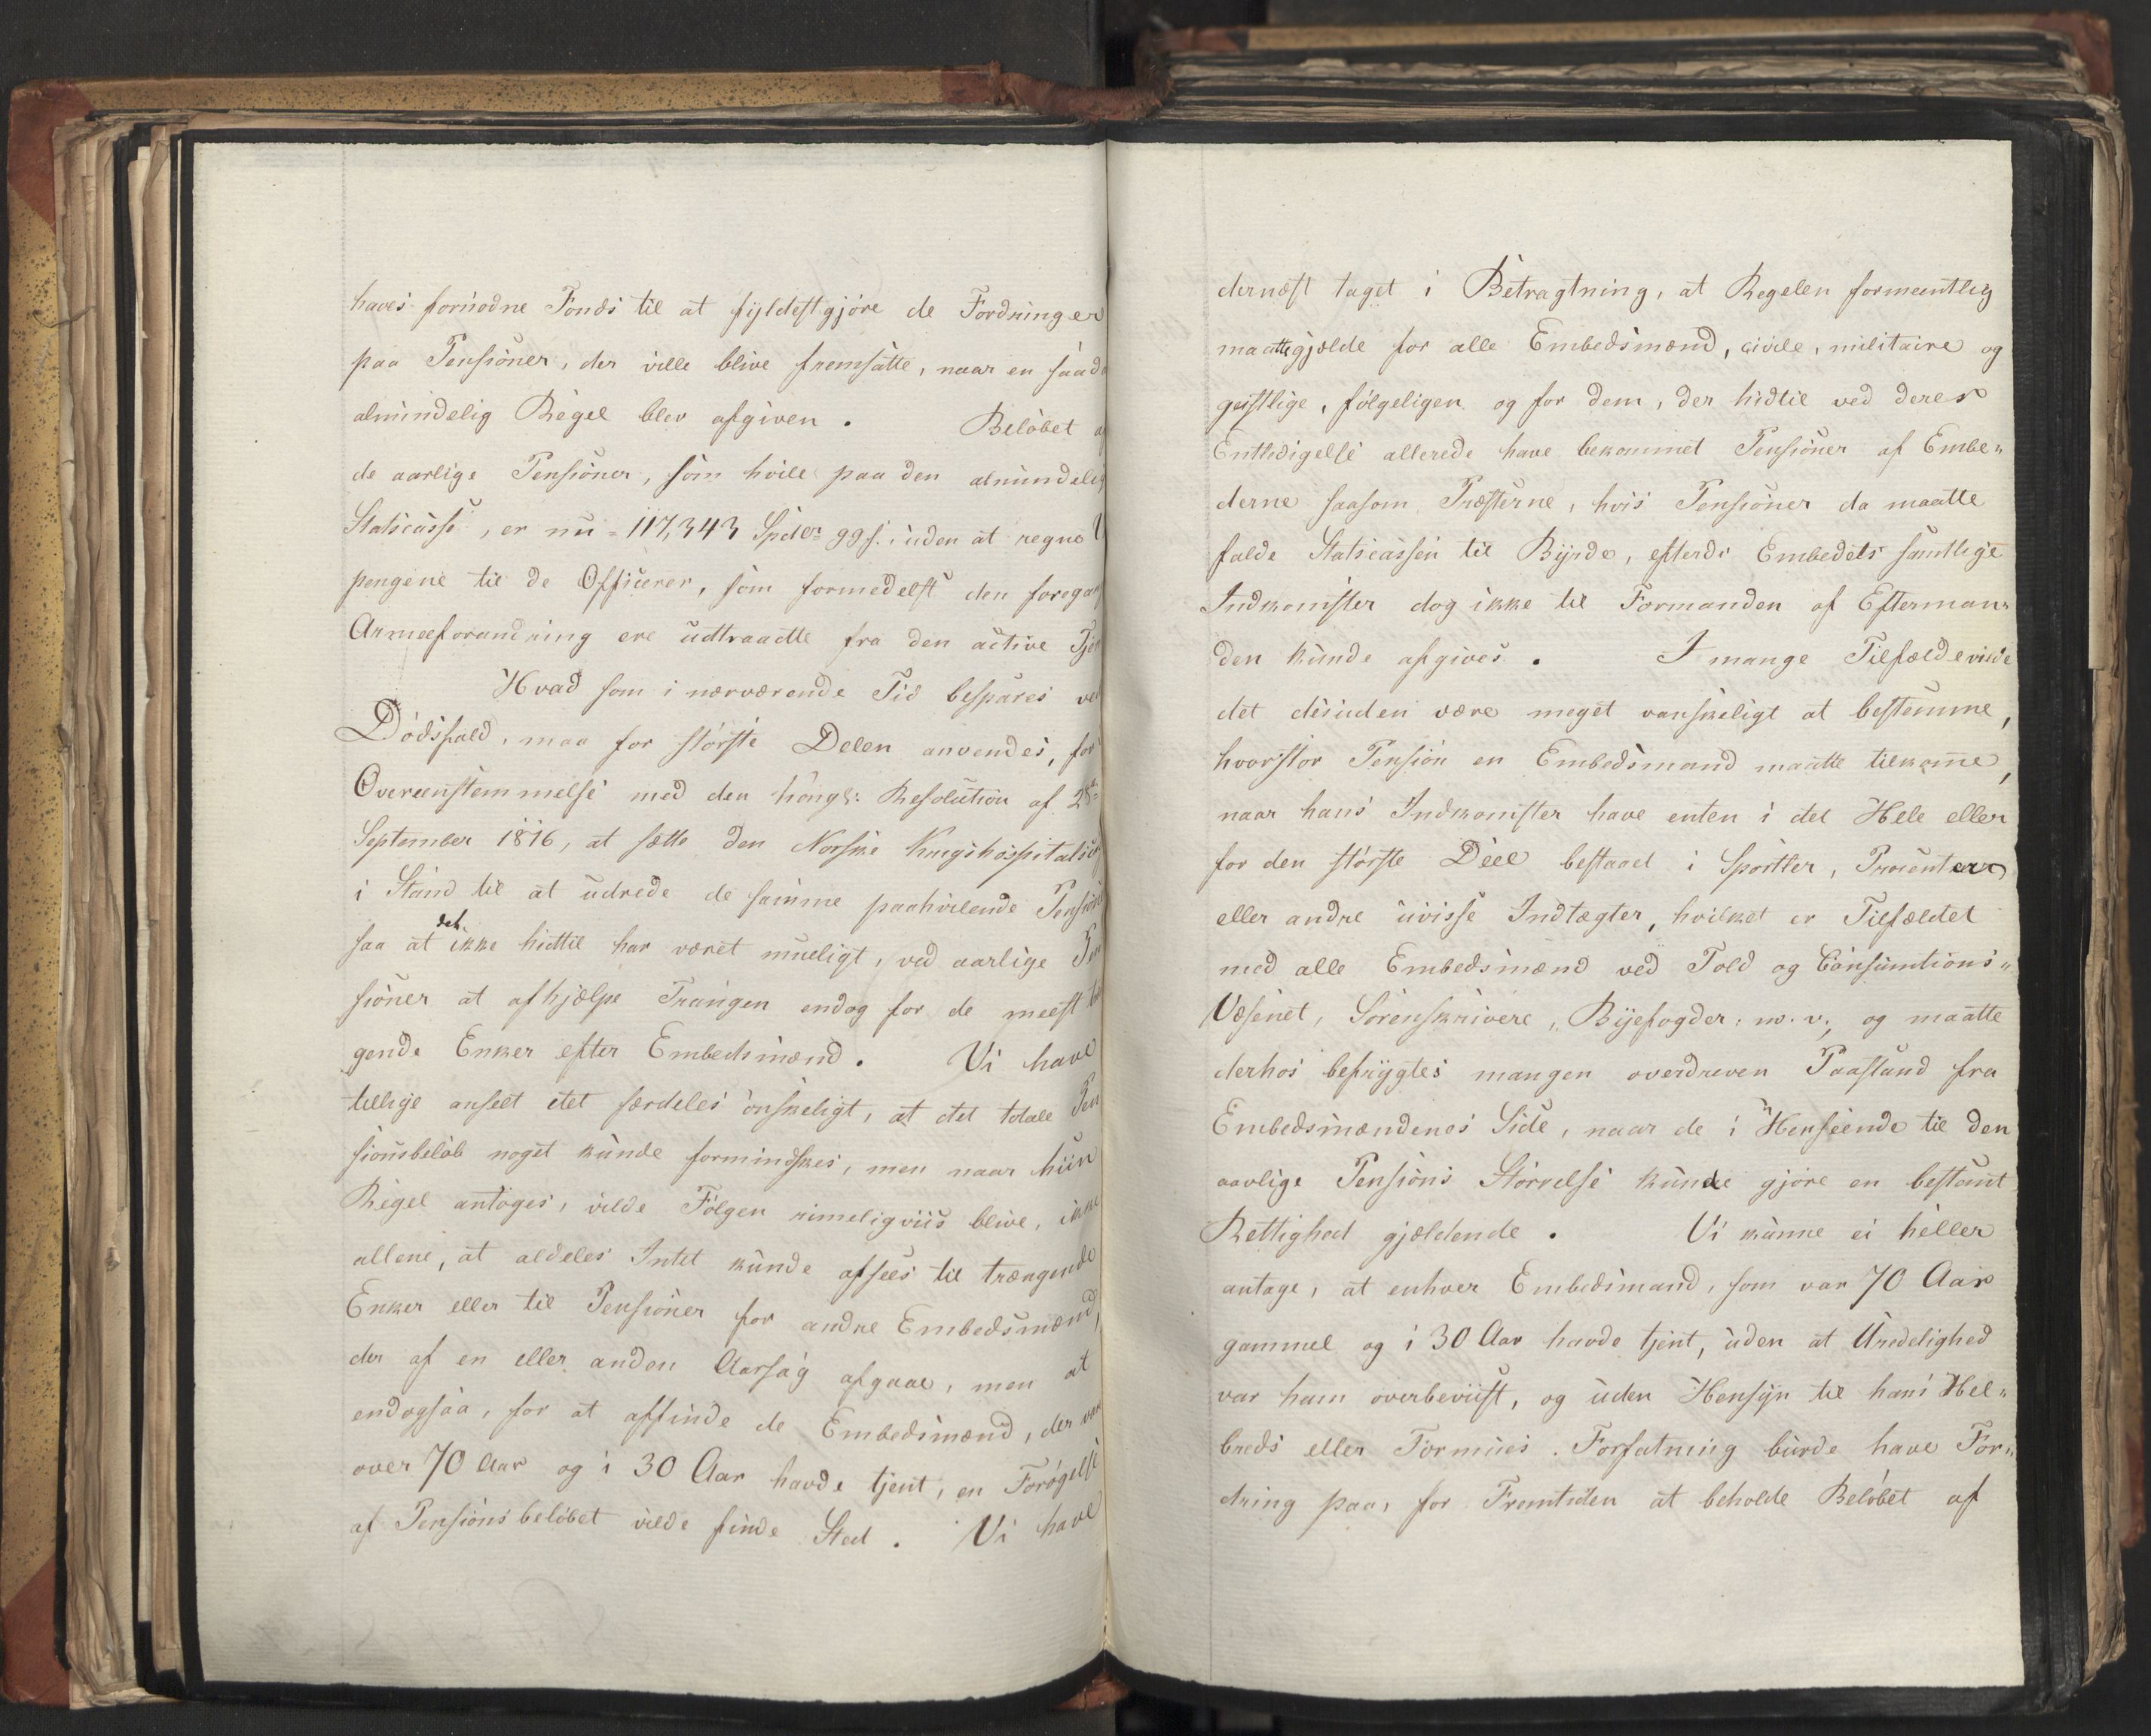 haves fornødne Fonds til at fyldestgjøre de Fordringer
paa Pensioner, der ville blive fremsatte, naar en saad
almindelig Regel blev afgiven. Beløbet a
de aarlige Pensioner, som hvile paa den almindelig
Statscasse, er nu = 117,343 Spdlr 99 s. uden at regne
pengene til de Officerer, som formedelst den foregaa
Armeeforandring ere udtraadte fra den active Tje
Hvad som i nærværende Tid bespares ve
Dødsfald, maa for største Delen anvendes, for
Overeenstemmelse med den höngs: Resolution af 28de
September 1816, at sætte den Norske Krigshospitals
i Stand til at udrede de samme paahvilende Pension
saa at det ikke hidtil har været mueligt, ved aarlige Pen
sioner at afhjælpe Trangen endog for de meest træn
gende Enker efter Embedsmænd. Vi have
tillige anseet det særdeles ønskeligt, at det totale Pen
sionsbeløb noget kunde formindskes, men naar hiin
Regel antoges, vilde Følgen rimeligviis blive, ikke
allene, at aldeles Intet kunde afsees til trængende
Enker eller til Pensioner for andre Embedsmænd,
der af en eller anden Aarsag afgaae, men at
endogsaa, for at affinde de Embedsmænd, der var
over 70 Aar og i 30 Aar havde tjent, en Forøgelse
af Pensionsbeløbet vilde finde Sted. Vi have
dernæst taget i Betragtning, at Regelen formeentlig
maatte gjælde for alle Embedsmænd, civile, militaire og
geistlige, følgeligen og for dem, der hidtil ved deres
Entledigelse allerede have bekommet Pensioner af Embe„
derne saasom Præsterne, hvis Pensioner da maatte
falde Statscassen til Byrde, efterdi Embedets samtlige
Indkomster dog ikke til Formanden af Efterman„
den kunde afgives. I mange Tilfælde vilde
det desuden være meget vanskeligt at bestemme,
hvorstor Pension en Embedsmand maatte tilkomme,
naar hans Indkomster have enten i det Hele eller
for den største Deel bestaaet i Sportler, Procenter
eller andre uvisse Indtægter, hvilket er Tilfældet
med alle Embedsmænd ved Told og Consumtions„
Væsenet, Sorenskrivere, Byefogder, m. v., og maatte
derhos befrygtes mangen overdreven Paastand fra
Embedsmændenes Side, naar de i Henseende til den
aarlige Pensions Størrelse kunde gjøre en bestemt
Rettighed gjældende. Vi kunne ei heller
antage, at enhver Embedsmand, som var 70 Aar
gammel og i 30 Aar havde tjent, uden at Uredelighed
var ham overbeviist, og uden Hensyn til hans Hel„
breds eller Formues Forfatning burde have For„
dring paa, for Fremtiden at beholde Beløbet af